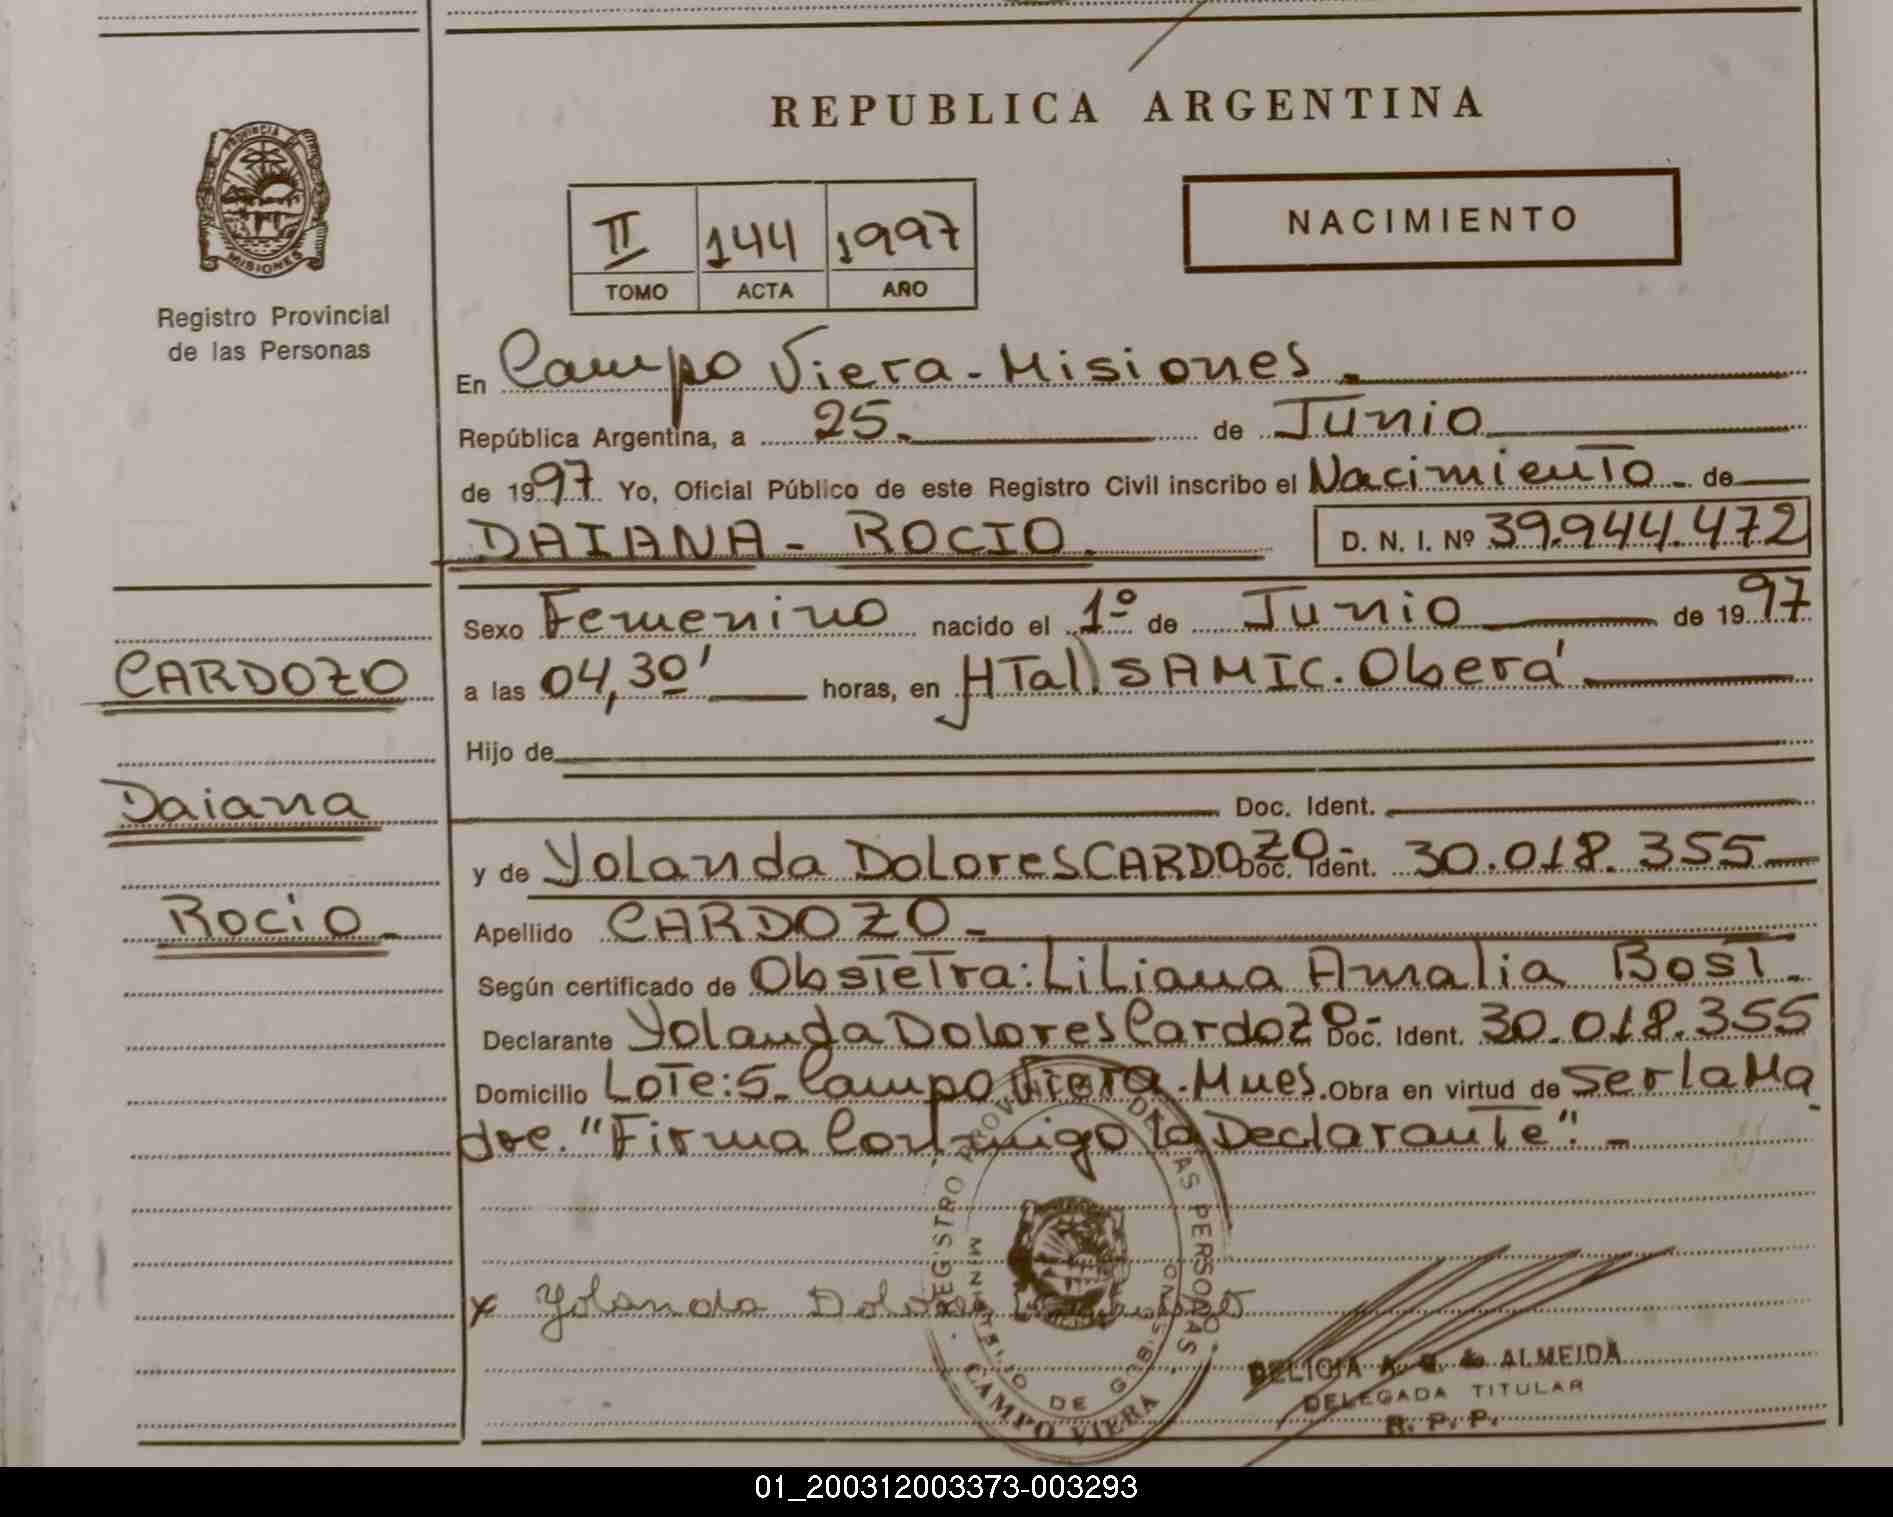 REPUBLICA ARGENTINA
PROVINCIA DE
MISIONES
Registro Provincial
de las Personas
II 144 1997
TOMO ACTA AÑO
NACIMIENTO
En Campo Viera - Misiones.
República Argentina, a 25. de Junio
de 1997 Yo, Oficial Público de este Registro Civil inscribo el Nacimiento - de
DAIANA - ROCIO. D. N. I. Nº 39.944.472
Sexo Femenino nacido el 1º de Junio de 1997
CARDOZO
a las 04,30' horas, en HTal. SAMIC. Oberá
Hijo de
Daiana
Doc. Ident.
y de Yolanda Dolores CARDOZO- Doc. Ident. 30.018.355
Rocio -
Apellido CARDOZO -
Según certificado de Obstetra: Liliana Amalia Bost -
Declarante Yolanda Dolores Cardozo- Doc. Ident. 30.018.355
Domicilio Lote: 5 - Campo Viera - Mnes. Obra en virtud de ser la Ma
dre. "Firma Conmigo la Declarante". -
x Yolanda Dolores
REGISTRO PROVINCIAL DE LAS PERSONAS
MINISTERIO DE GOBIERNO
CAMPO VIERA
DELICIA A. de ALMEIDA
DELEGADA TITULAR
R. P. P.
01_200312003373-003293